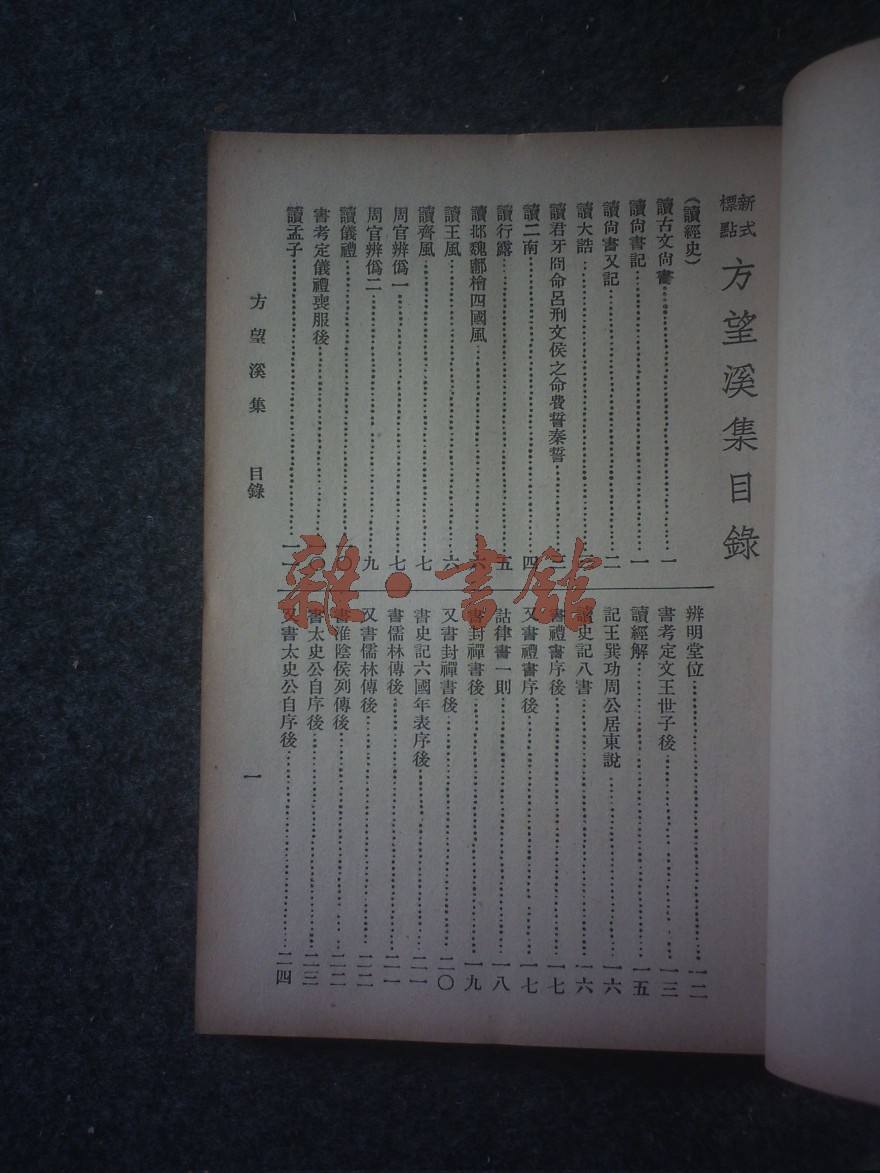 新式標點 方望溪集目錄
(讀經史)
讀古文尙書 一
讀尙書記 一
讀尙書又記 二
讀大誥
讀君牙冏命呂刑文侯之命費誓秦誓
讀二南 四
讀行露 五
讀邶魏鄘檜四國風 六
讀王風 六
讀齊風 七
周官辨僞一 七
周官辨僞二 九
讀儀禮 一〇
書考定儀禮喪服後
讀孟子 一一
辨明堂位 一二
書考定文王世子後 一三
讀經解 一五
記王巽功周公居東說 一六
讀史記八書 一六
書禮書序後 一七
又書禮書序後 一七
詁律書一則 一八
書封禪書後 一九
又書封禪書後 二〇
書史記六國年表序後 二一
書儒林傳後 二一
又書儒林傳後 二二
書淮陰侯列傳後 二二
書太史公自序後 二三
又書太史公自序後 二四
方望溪集 目錄 一
雜·書館